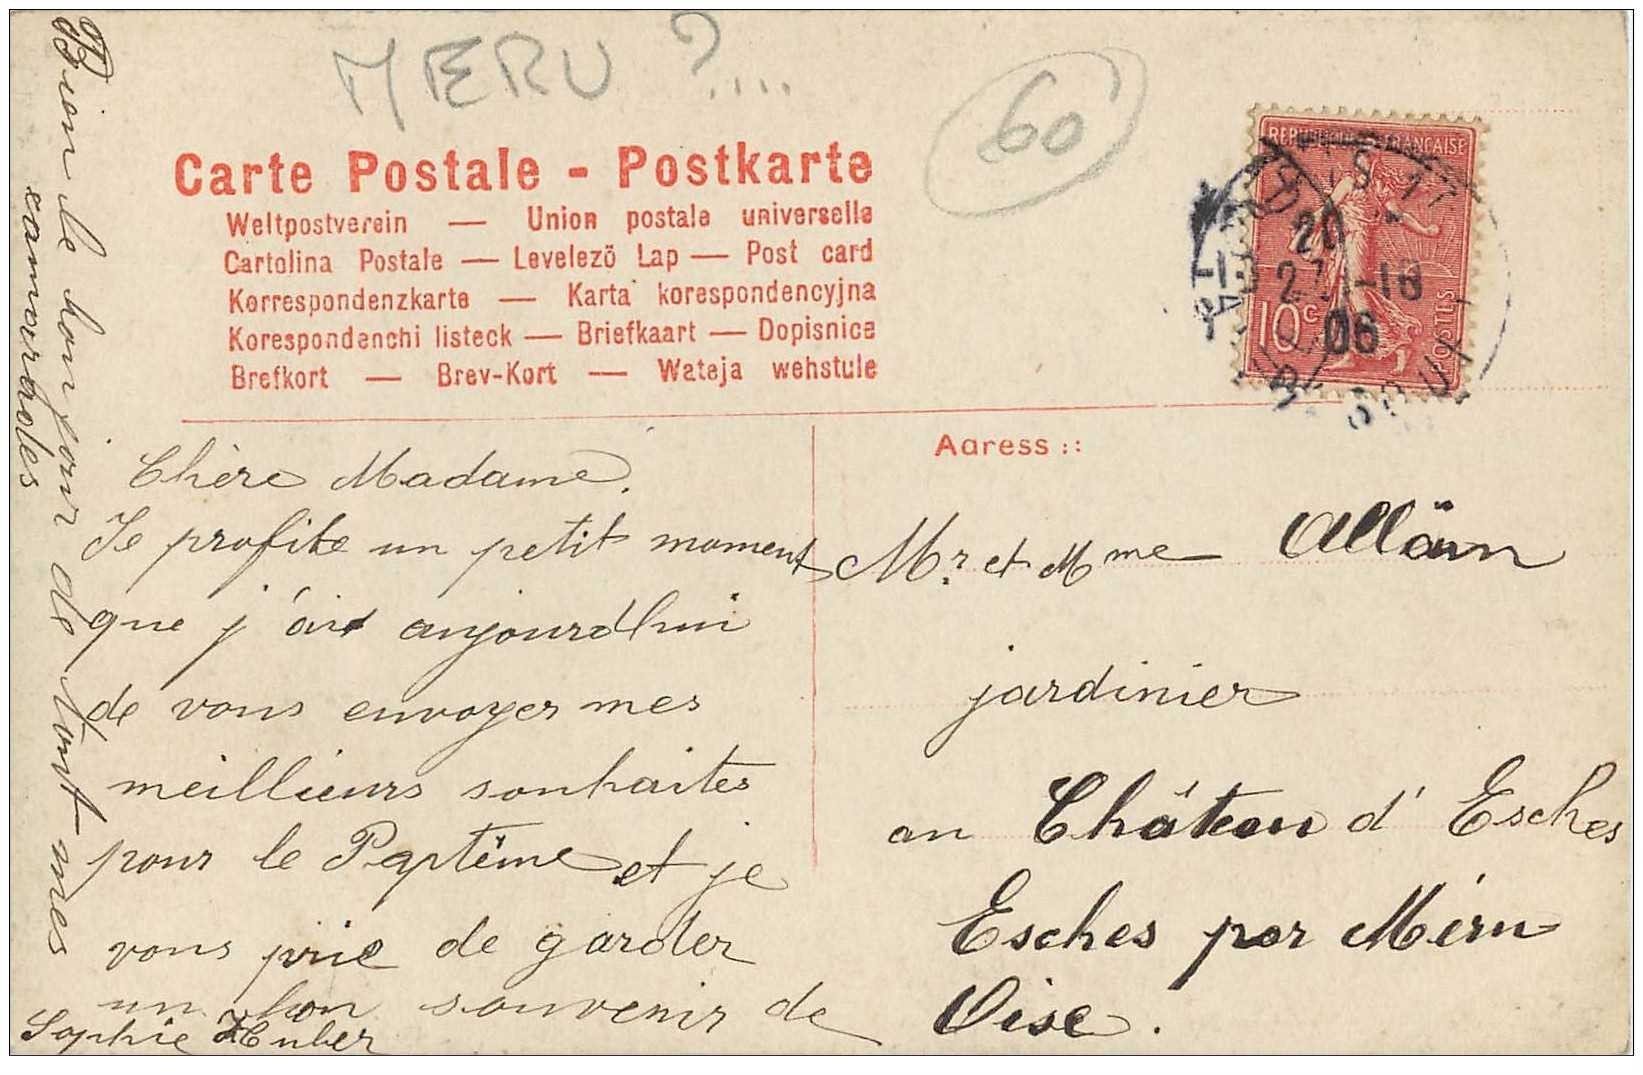 MERU ?....
60
Carte Postale - Postkarte
Weltpostverein — Union postale universelle
Cartolina Postale — Levelezö Lap — Post card
Korrespondenzkarte — Karta korespondencyjna
Korespondenchi listeck — Briefkaart — Dopisnice
Brefkort — Brev-Kort — Wateja wehstule
REPUBLIQUE FRANÇAISE
10c
POSTES
20
06
Adress ::
Chère Madame.
Je profite un petit moment
que j'ait aujourdhui
de vous envoyer mes
meillieurs souhaites
pour le Paptême et je
vous prie de garder
un bon souvenir de
Sophie Huber
Bien le bonjour de tout mes
camarholes
Mr. et Mme Alläin
jardinier
au Château d'Esches
Esches par Méru
Oise.